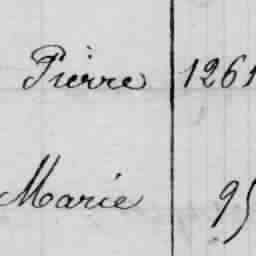 Pierre 1261
Marie 95